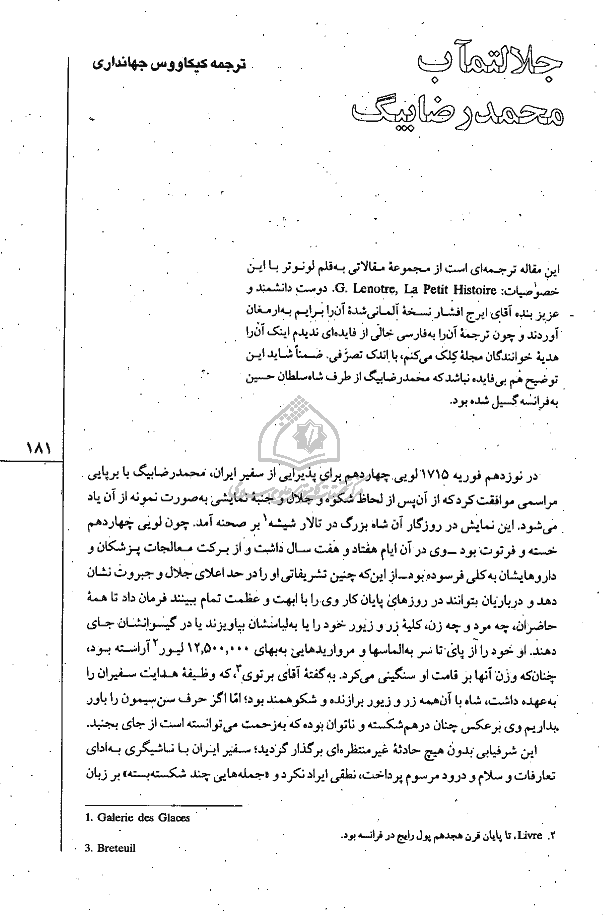 جلالتمآب
محمدرضابیگ
ترجمه کیکاووس جهانداری
این مقاله ترجمه‌ای است از مجموعهٔ مقالاتی به‌قلم لونوتر با این
خصوصیات: G. Lenotre, La Petit Histoire. دوست دانشمند و
عزیز بنده آقای ایرج افشار نسخهٔ آلمانی‌شدهٔ آن‌را برایم به‌ارمغان
آوردند و چون ترجمهٔ آن‌را به‌فارسی خالی از فایده‌ای ندیدم اینک آن‌را
هدیهٔ خوانندگان مجلهٔ کلک می‌کنم، با اندک تصرّفی. ضمناً شاید این
توضیح هم بی‌فایده نباشد که محمدرضابیگ از طرف شاه‌سلطان حسین
به‌فرانسه گسیل شده بود.
۱۸۱
در نوزدهم فوریه ۱۷۱۵ لویی چهاردهم برای پذیرایی از سفیر ایران، محمدرضابیگ با برپایی
مراسمی موافقت کرد که از آن‌پس از لحاظ شکوه و جلال و جنبهٔ نمایشی به‌صورت نمونه از آن یاد
می‌شود. این نمایش در روزگار آن شاه بزرگ در تالار شیشه۱ بر صحنه آمد. چون لویی چهاردهم
خسته و فرتوت بود ــ وی در آن ایام هفتاد و هفت سال داشت و از برکت معالجات پزشکان و
داروهایشان به‌کلی فرسوده بود ــ از این‌که چنین تشریفاتی او را در حد اعلای جلال و جبروت نشان
دهد و درباریان بتوانند در روزهای پایان کار وی را با ابهت و عظمت تمام ببینند فرمان داد تا همهٔ
حاضران، چه مرد و چه زن، کلیهٔ زر و زیور خود را یا به‌لباسشان بیاویزند یا در گیسوانشان جای
دهند. او خود را از پای تا سر به‌الماسها و مرواریدهایی به‌بهای ۱۲,۵۰۰,۰۰۰ لیور۲ آراسته بود،
چنان‌که وزن آنها بر قامت او سنگینی می‌کرد. به‌گفتهٔ آقای برتوی۳، که وظیفهٔ هدایت سفیران را
به‌عهده داشت، شاه با آن‌همه زر و زیور برازنده و شکوهمند بود؛ امّا اگر حرف سن‌سیمون را باور
بداریم وی برعکس چنان درهم‌شکسته و ناتوان بوده که به‌زحمت می‌توانسته است از جای بجنبد.
این شرفیابی بدون هیچ حادثهٔ غیرمنتظره‌ای برگذار گردید؛ سفیر ایران با ناشیگری به‌ادای
تعارفات و سلام و درود مرسوم پرداخت، نطقی ایراد نکرد و «جمله‌هایی چند شکسته‌بسته» بر زبان
1. Galerie des Glaces
۲. Livre، تا پایان قرن هجدهم پول رایج در فرانسه بود.
3. Breteuil